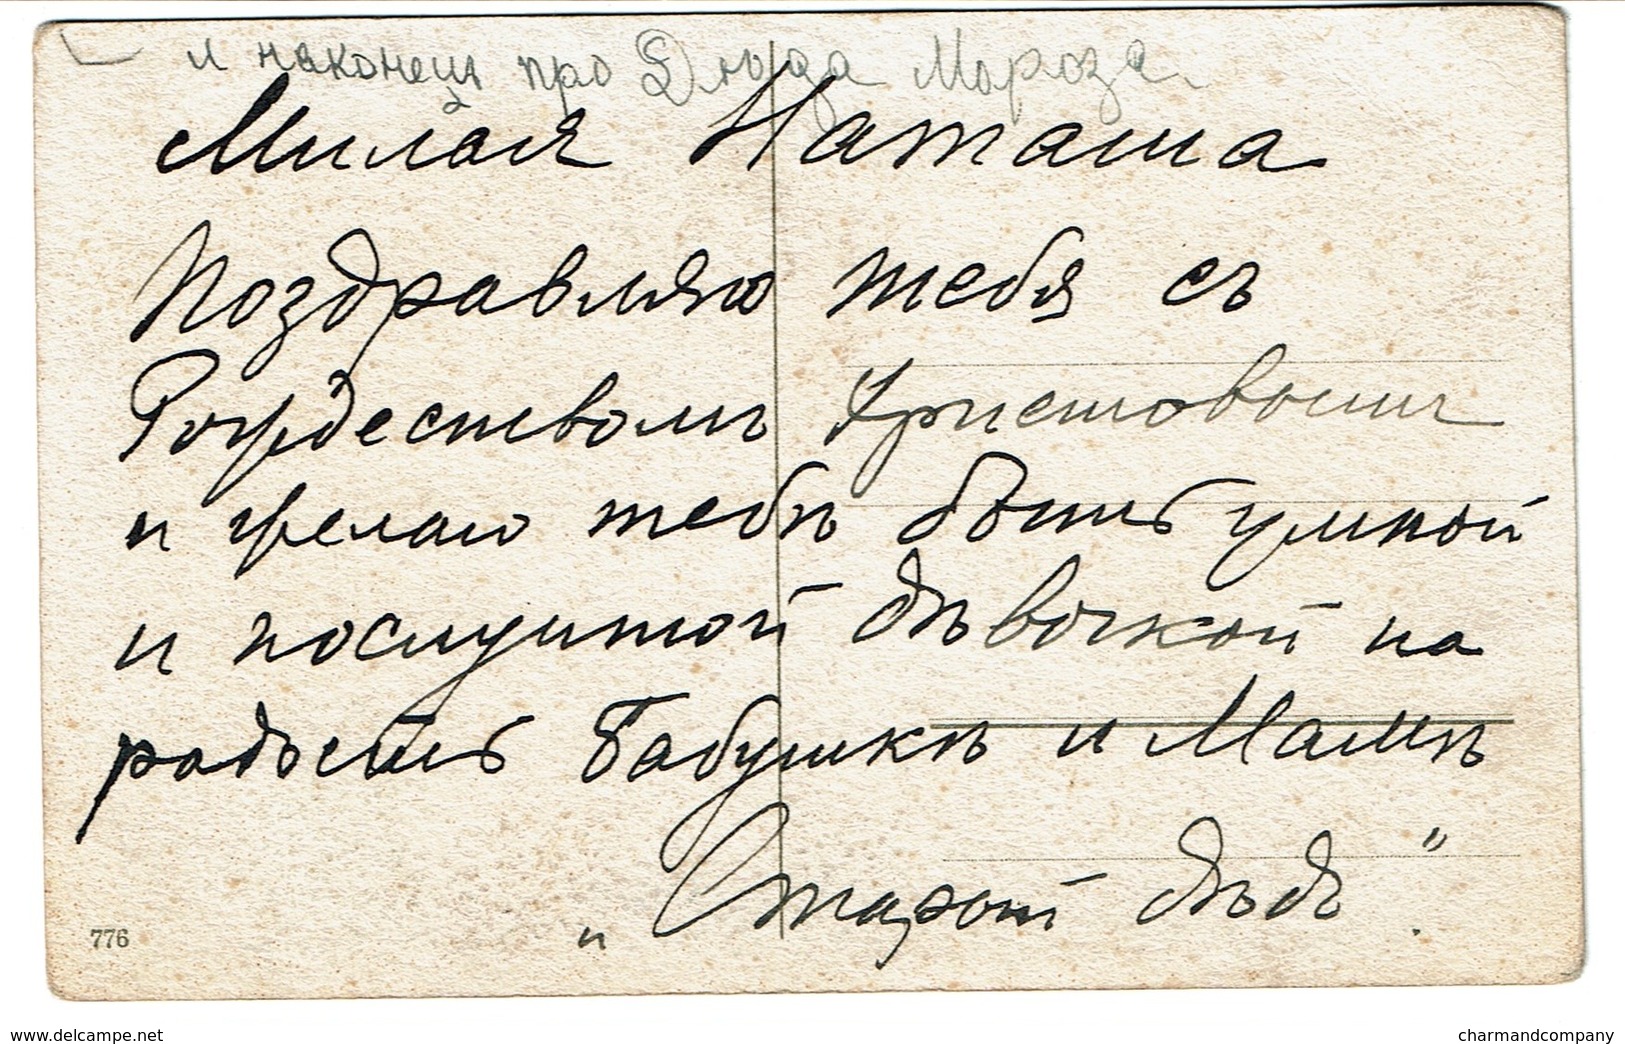 и наконец про Дѣда Мороза.
Милая Наташа
Поздравляю тебя съ
Рождествомъ Христовымъ
и желаю тебѣ быть умной
и послушной дѣвочкой на
радость Бабушкѣ и Мамѣ
„Старый дѣдъ".
776
www.delcampe.net
charmandcompany